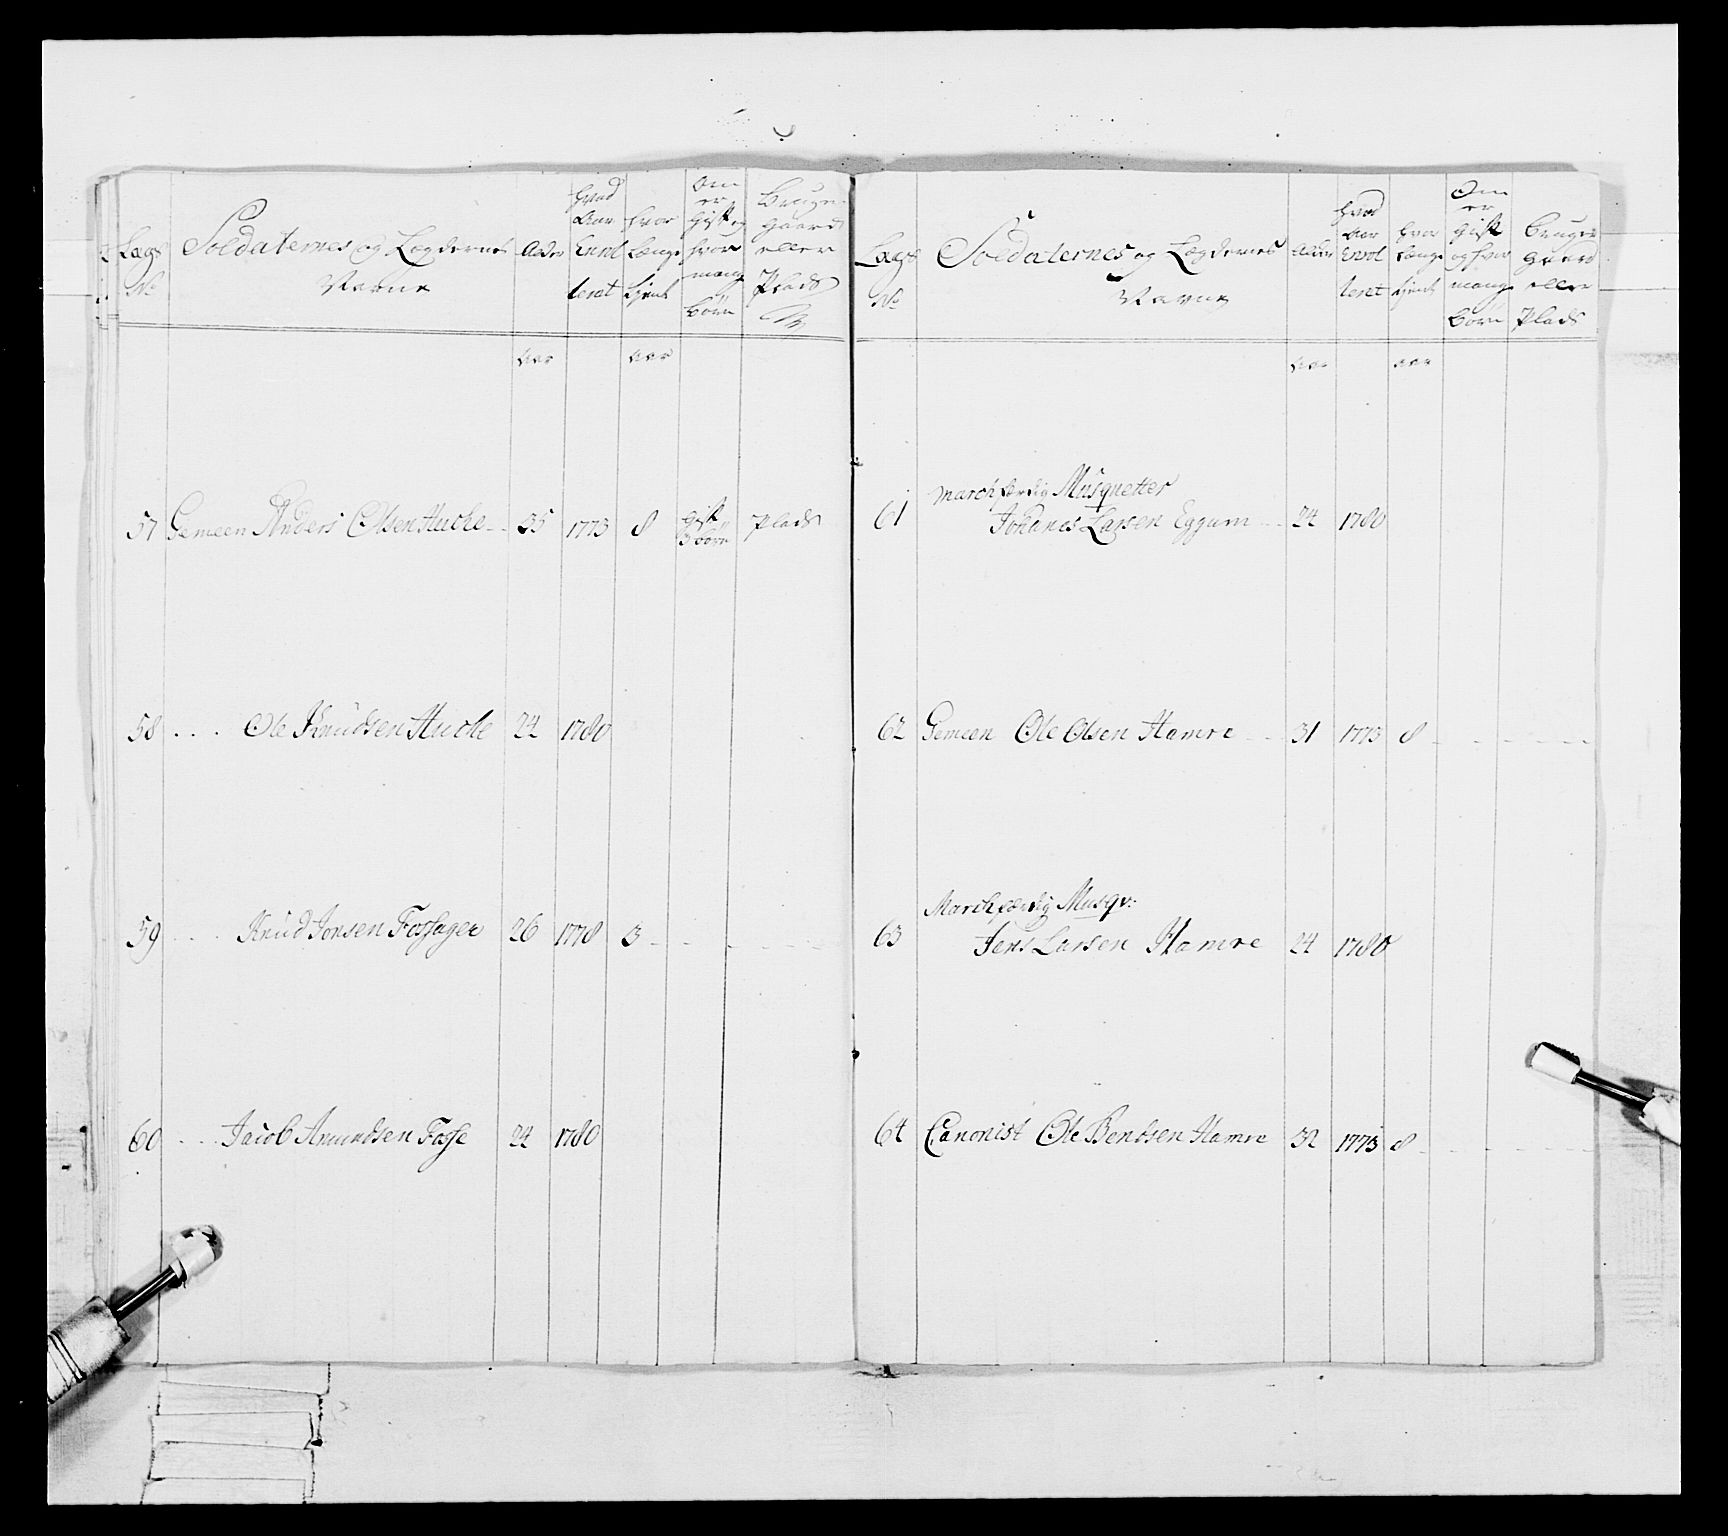 Lægs No
Soldaternes og Lægdernes Navne
Alder
hvad Aar Enrol leret
hvor længe tjent
Om er gift og hvor mang børn
Bruger gaard eller Plads
aar
aar
57 Gemeen Anders Olsen Hucke 35 1773 8 gift 3 børn Plads
58 Ole Knudsen Hucke 24 1780
59 Knud Jonsen Fossager 26 1778 3
60 Jacob Amundsen Fosse 24 1780
Lægs No
Soldaternes og Lægdernes Navne
Alder
hvad Aar Enrol leret
hvor længe tjent
Om er gift og hvor mang børn
Bruger gaard eller Plads
aar
aar
marchfærdig Musquetter
61 Johanes Larsen Eggum 24 1780
62 Gemeen Ole Olsen Hamre 31 1773 8
Marchfærdig Musqv:
63 Jens Larsen Hamre 24 1780
64 Canonist Ole Bendsen Hamre 32 1773 8